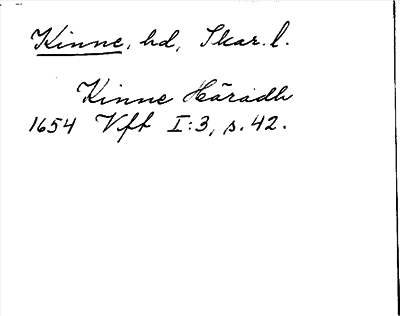 Kinne, hd, Skar. l.
Kinne Häradh
1654 Vft I:3, s. 42.